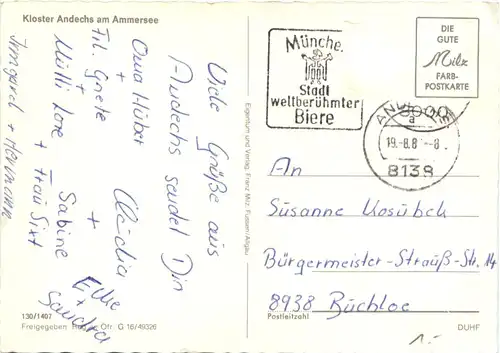 Kloster Andechs am Ammersee
Viele Grüße aus
Andechs sendet Din
Claudia
Oma Huber
+
Frl. Grete +
+ Sabine
Mutti Lore + Frau Sixt
Irmgard + Hermann
Elke
+
Sandra
130/1407
Freigegeben Reg. Ofr. G 16/49326
Eigentum und Verlag, Franz Milz, Füssen/Allgäu
Münche.
Stadt
weltberühmter
Biere
8000
19.-8.8
8138
DIE
GUTE
Milz
FARB-
POSTKARTE
An
Susanne
Bürgermeister-Strauß-Str. 14
8938 Buchloe
Postleitzahl
DUHF
1.-